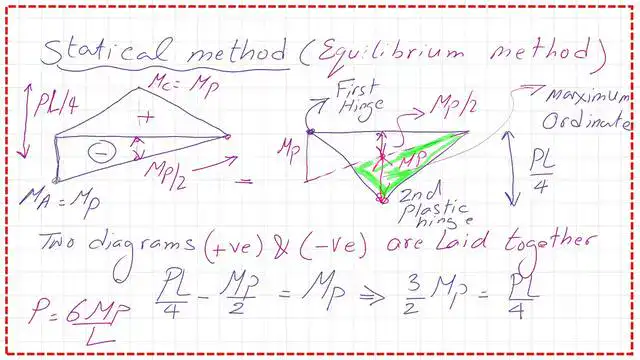 Statical method (Equilibrium method)
PL/4
Mc = Mp
+
-
Mp/2
MA = Mp
=
First Hinge
Mp
Mp/2
Mp
Maximum Ordinate
PL/4
2nd Plastic hinge
Two diagrams (+ve) & (-ve) are Laid together
PL/4 - Mp/2 = Mp ⇒ 3/2 Mp = PL/4
P = 6Mp/L